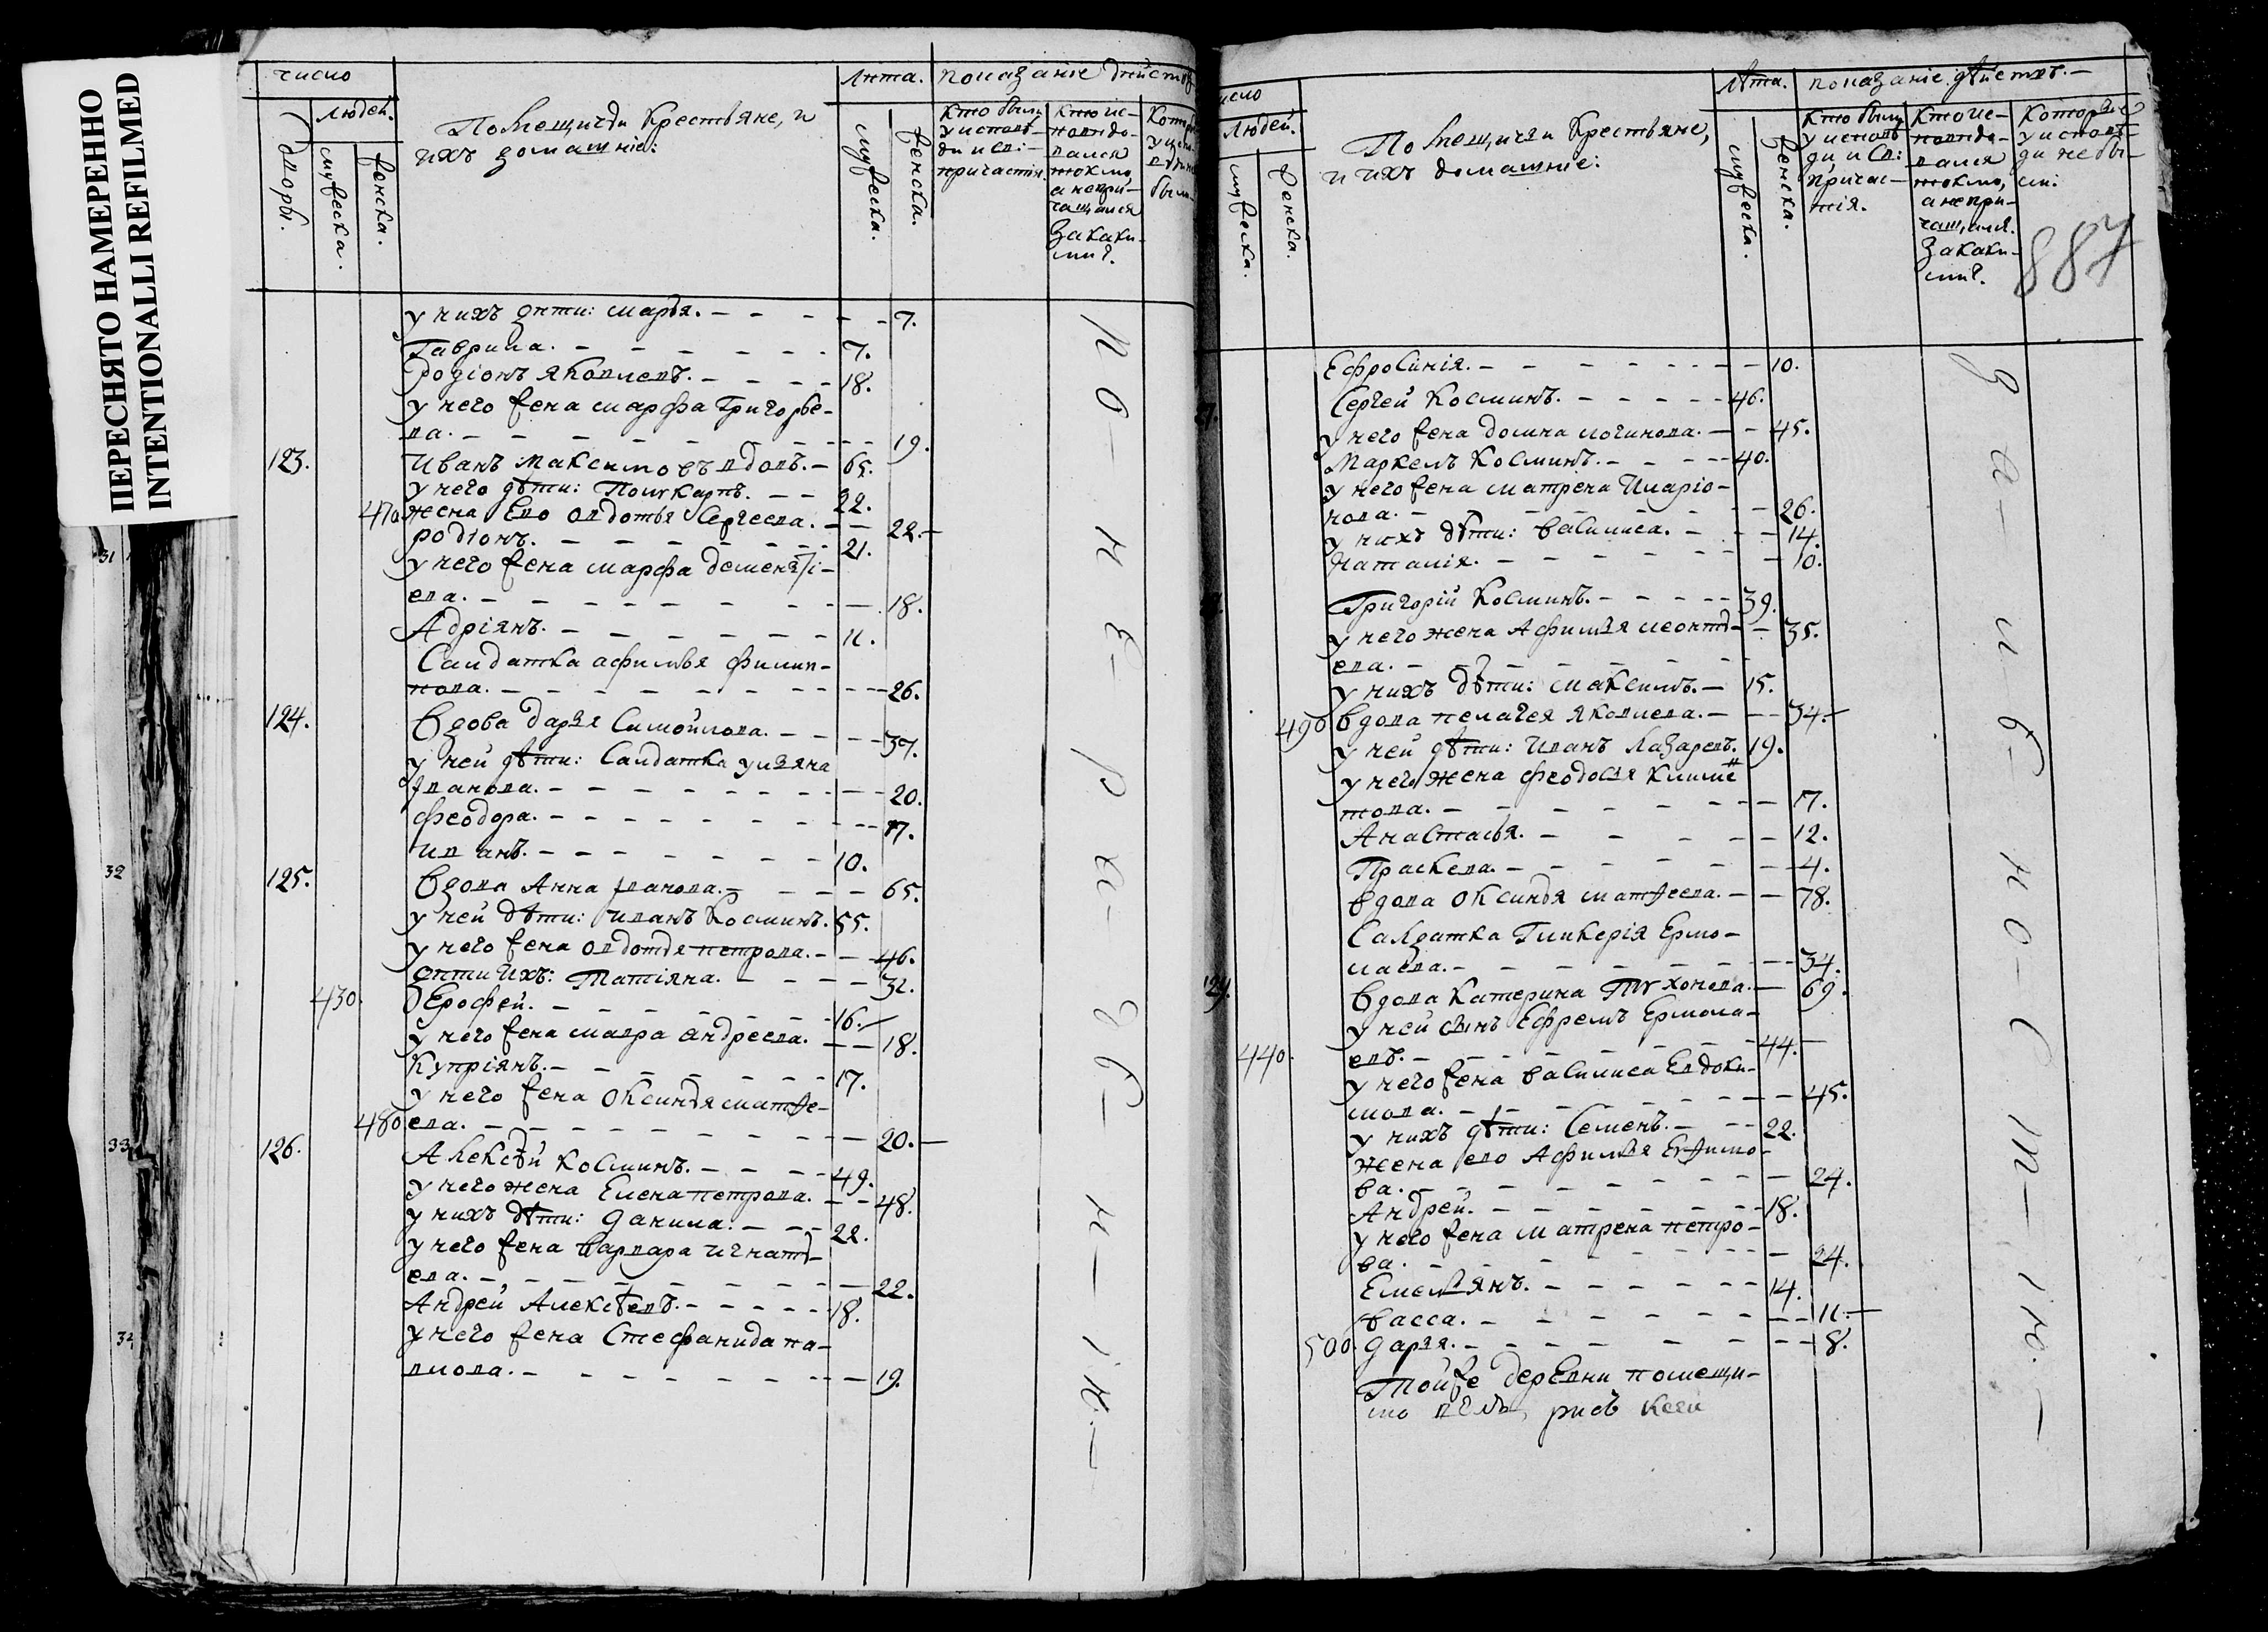 ПЕРЕСНЯТО НАМЕРЕННО
INTENTIONALLI REFILMED
число
людей.
дворы.
мужеска.
женска.
Помещичьи Крестьяне, и
ихъ домашніе:
Лѣта.
мужеска.
женска.
показаніе дѣйств
кто были
у исповѣ-
ди и св:
причастия.
кто ис-
поведо-
вался
токмо,
а непри-
чащался
за каки-
ми?.
у нихъ дѣти: марья. - - - - - 7.
Гаврила. - - - - - - 7.
родіонъ яковлевъ. - - - - 18.
у него жена марфа Григорье-
ва. - - - - - - - - - 19.
123. Иванъ максимовъ вдовъ. - 65.
у него дѣти: Поликарпъ. - - 22.
470 жена Ево овдотья Сергеева. - - 22. -
родіонъ. - - - - - - - 21.
у него жена марфа дементі-
ева. - - - - - - - - - 18.
Адріянъ. - - - - - - 11.
Салдатка афимья филип-
пова. - - - - - - - - - - 26.
124. Вдова дарья Самойлова. - - - - 37.
у ней дѣти: Салдатка ульяна
Іванова. - - - - - - - - - - 20.
феодора. - - - - - - - - - - 17.
иванъ. - - - - - - - 10.
125. Вдова Анна Іванова. - - - - 65.
у ней дѣти: иванъ Косминъ. 55.
у него жена овдотья петрова. - - 46.
дѣти ихъ: Татіяна. - - - - 32.
430. Ерофей. - - - - - - - 16. -
у него жена мавра андреева. - - 18.
Купріянъ. - - - - - - - 17.
у него жена Оксинья матѳе-
480 ева. - - - - - - - - - 20. -
126. Алексѣй Косминъ. - - - - 49.
у него жена Елена петрова. - - 48.
у нихъ дѣти: данила. - - - 22.
у него жена варвара игнать-
ева. - - - - - - - - - 22.
Андрей Алексѣевъ. - - - - - 18.
у него жена Стефанида па-
влова. - - - - - - - - - 19.
число
людей.
мужеска.
женска.
Помещичьи Крестьяне,
и ихъ домашніе:
Лѣта.
мужеска.
женска.
показаніе дѣйствъ. -
кто были
у исповѣ
ди и св:
причас-
тія.
кто ис-
поведо-
вался
токмо,
а непри-
чащался.
за каки-
ми?.
которые
у исповѣ-
ди небы-
ли:
887
Ефросинія. - - - - - - - - 10.
Сергей Косминъ. - - - - - 46.
у него жена домна логинова. - - 45.
Маркелъ Косминъ. - - - - 40.
у него жена матрена Иларіо-
нова. - - - - - - - - 26.
у нихъ дѣти: василиса. - - - 14.
Наталія. - - - - - - - - 10.
Григорій Косминъ. - - - - - 39.
у него жена Афимья леонть- - 35.
ева. - - - - - - -
у нихъ дѣти: максимъ. - 15.
490 вдова пелагея яковлева. - - - 34. -
у ней дѣти: иванъ Лазаревъ. 19.
у него жена феодосья климе
това. - - - - - - - - 17.
Анастасья. - - - - - - 12.
Праскева. - - - - - - - 4.
вдова Оксинья матѳеева. - - 78.
Салдатка Гликерія Ермо-
лаева. - - - - - - - - - 34.
129. вдова Катерина Тихонова. - 69.
у ней сынъ Ефремъ Ермола-
440. евъ. - - - - - - - 44. -
у него жена василиса Евдоки-
мова. - - - - - - - - 45.
у нихъ дѣти: Семенъ. - - - 22.
жена ево Афимья Ефимо-
ва. - - - - - - - - 24.
Андрей. - - - - - - - 18.
у него жена матрена петро-
ва. - - - - - - - - 24.
Емельянъ. - - - - - - 14.
васса. - - - - - - - - 11. -
500. дарья. - - - - - - - - 8.
Тойже деревни помещи-